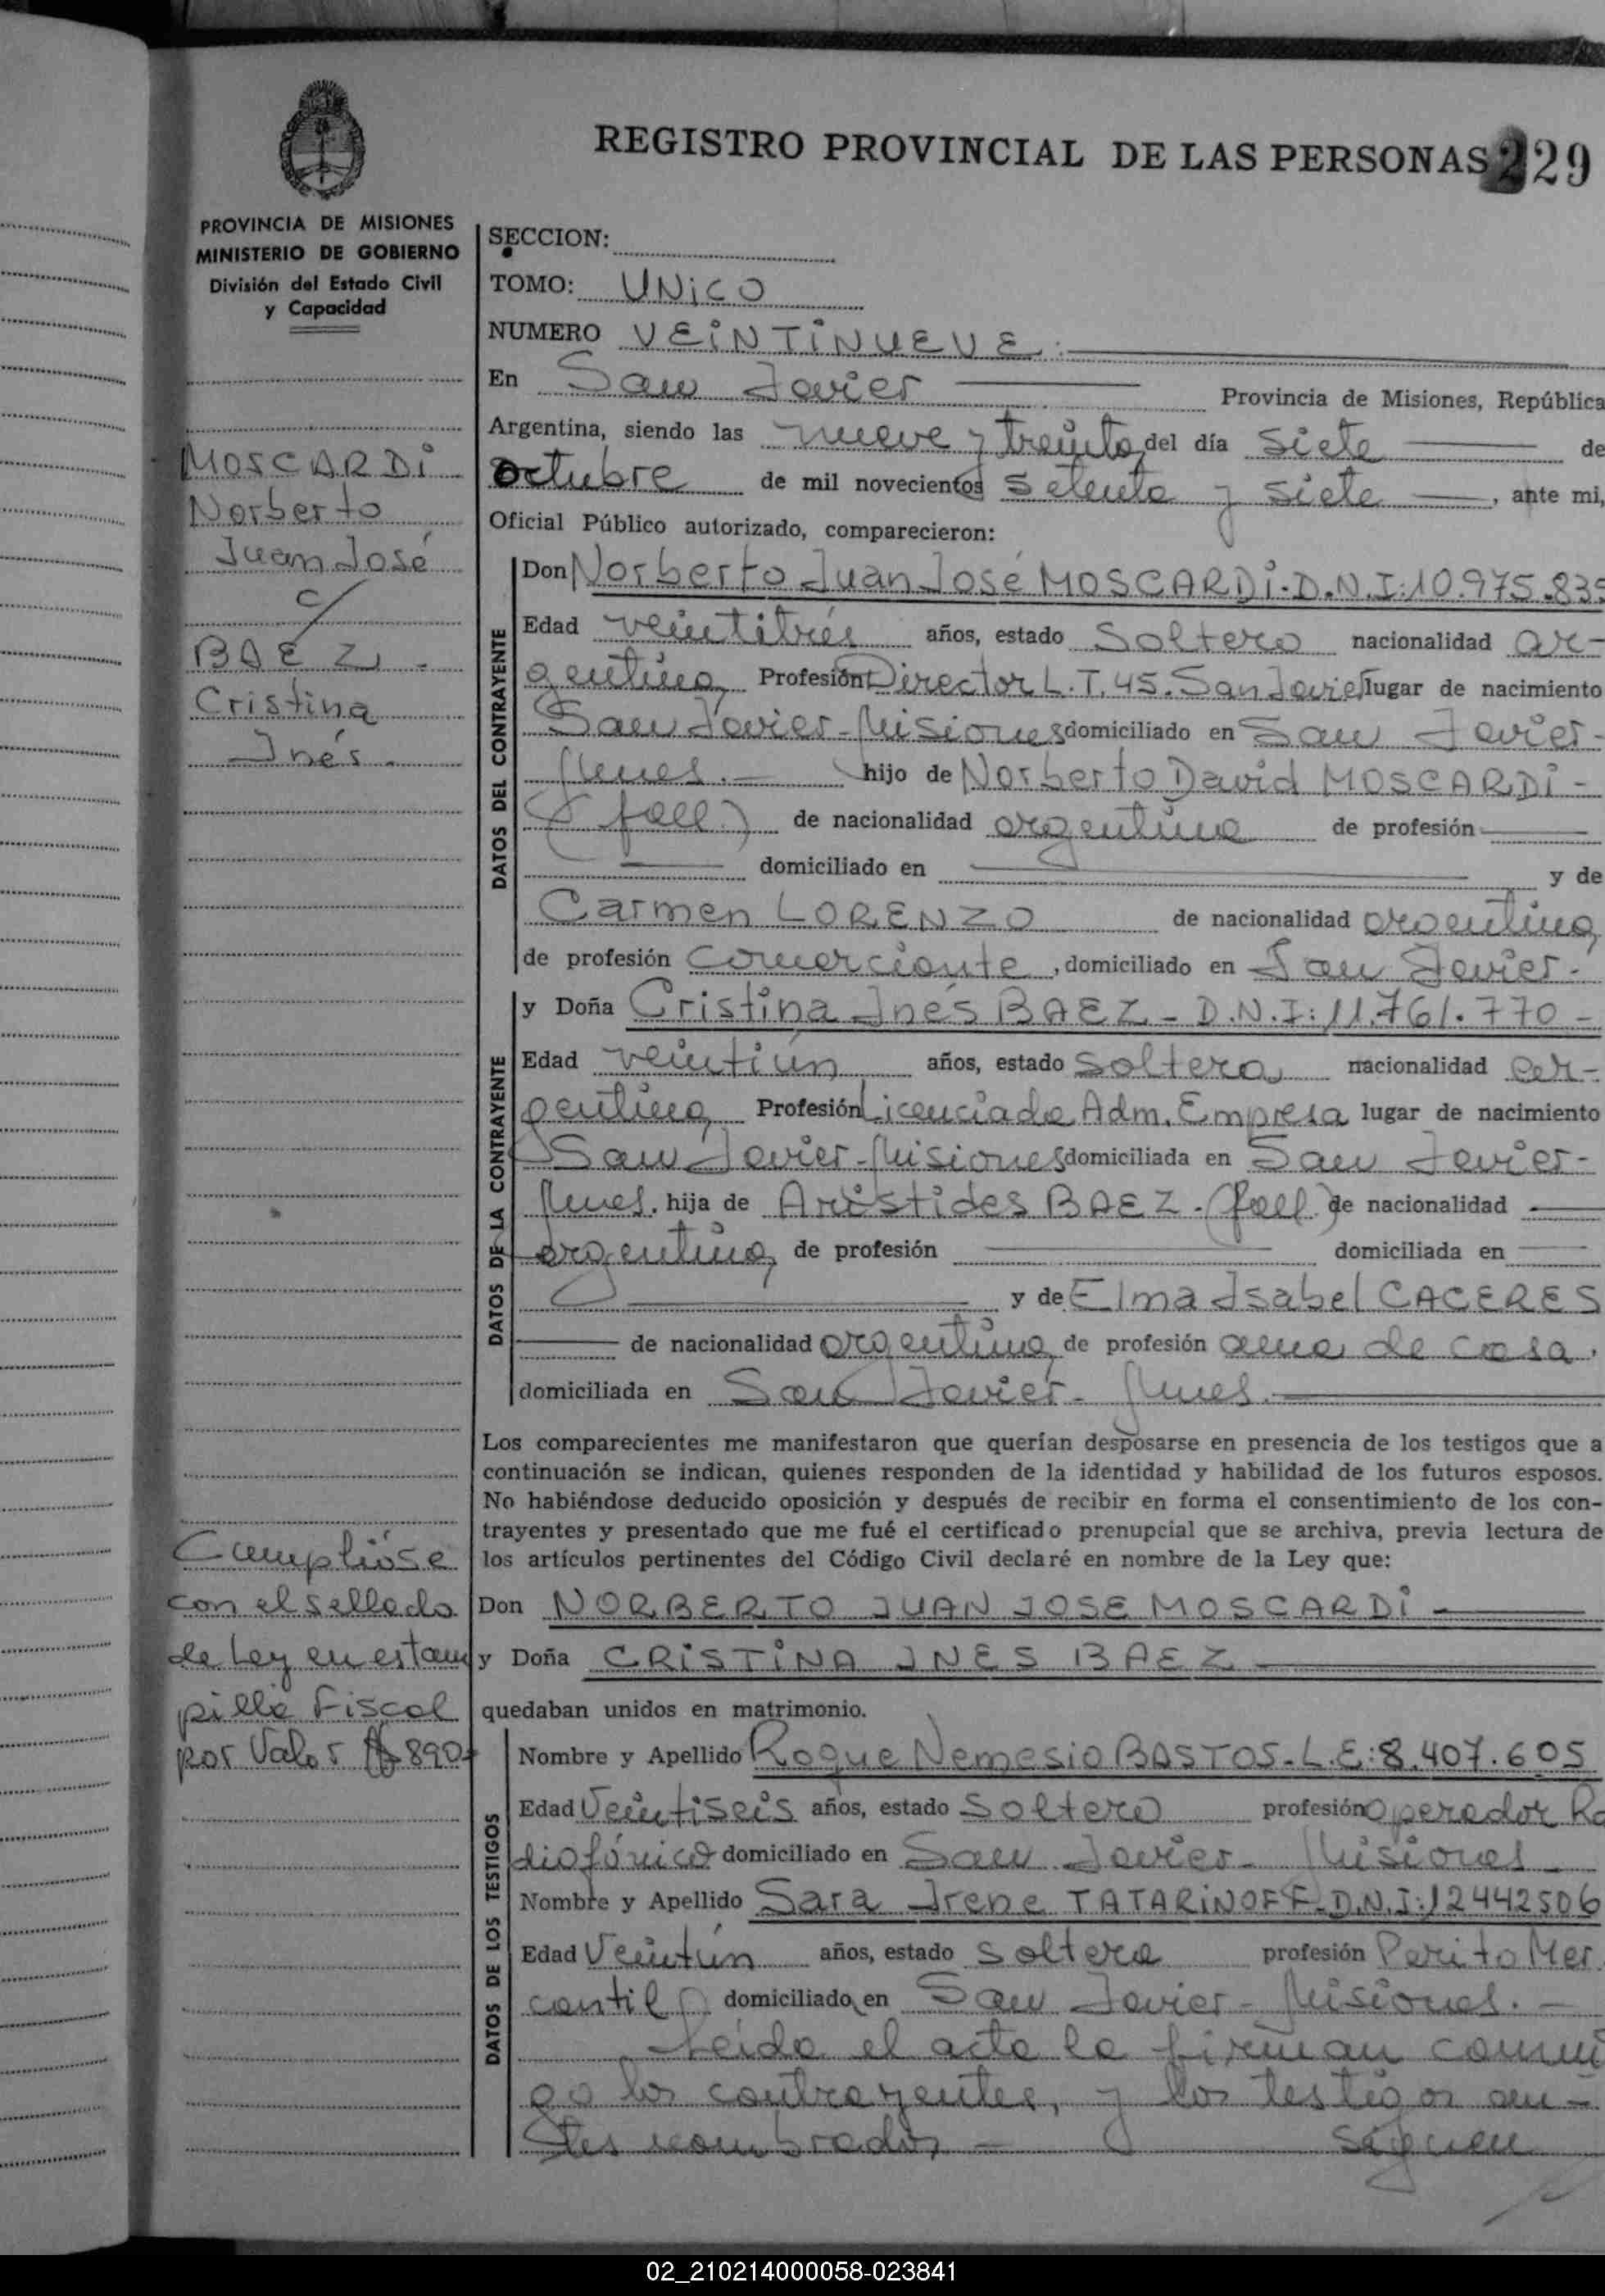 REGISTRO PROVINCIAL DE LAS PERSONAS 229
PROVINCIA DE MISIONES
MINISTERIO DE GOBIERNO
División del Estado Civil
y Capacidad
MOSCARDI
Norberto
Juan José
c/
BAEZ.
Cristina
Inés.
Cumplióse
con el sellado
de Ley en estam
pilla Fiscal
por Valor $ 890
SECCION:
TOMO: UNICO
NUMERO VEINTINUEVE.
En San Javier Provincia de Misiones, República
Argentina, siendo las nueve y treinta del día siete de
octubre de mil novecientos setenta y siete, ante mi,
Oficial Público autorizado, comparecieron:
DATOS DEL CONTRAYENTE
Don Norberto Juan José MOSCARDI. D.N.I: 10.975.835
Edad veintitrés años, estado soltero nacionalidad ar-
gentina Profesión Director L.T. 45. San Javier lugar de nacimiento
San Javier - Misiones domiciliado en San Javier -
Mnes. - hijo de Norberto David MOSCARDI -
(fall) de nacionalidad argentina de profesión
domiciliado en y de
Carmen LORENZO de nacionalidad argentina
de profesión comerciante, domiciliado en San Javier.
DATOS DE LA CONTRAYENTE
y Doña Cristina Inés BAEZ - D.N.I: 11.761.770 -
Edad veintiún años, estado soltera nacionalidad ar-
gentina Profesión Licenciada Adm. Empresa lugar de nacimiento
San Javier - Misiones domiciliada en San Javier -
Mnes. hija de Arístides BAEZ - (fall.) de nacionalidad
argentina de profesión domiciliada en
y de Elma Isabel CACERES
de nacionalidad argentina de profesión ama de casa.
domiciliada en San Javier - Mnes.
Los comparecientes me manifestaron que querían desposarse en presencia de los testigos que a
continuación se indican, quienes responden de la identidad y habilidad de los futuros esposos.
No habiéndose deducido oposición y después de recibir en forma el consentimiento de los con-
trayentes y presentado que me fué el certificado prenupcial que se archiva, previa lectura de
los artículos pertinentes del Código Civil declaré en nombre de la Ley que:
Don NORBERTO JUAN JOSE MOSCARDI
y Doña CRISTINA INES BAEZ
quedaban unidos en matrimonio.
DATOS DE LOS TESTIGOS
Nombre y Apellido Roque Nemesio BASTOS - L.E: 8.407.605
Edad Veintiseis años, estado Soltero profesión Operador Ra
diofónico domiciliado en San Javier - Misiones
Nombre y Apellido Sara Irene TATARINOFF - D.N.I: 12442506
Edad Veintún años, estado soltera profesión Perito Mer
cantil domiciliado en San Javier - Misiones. -
Leída el acta la firman conmi
go los contrayentes, y los testigos an-
tes nombrados - Siguen
02_210214000058-023841